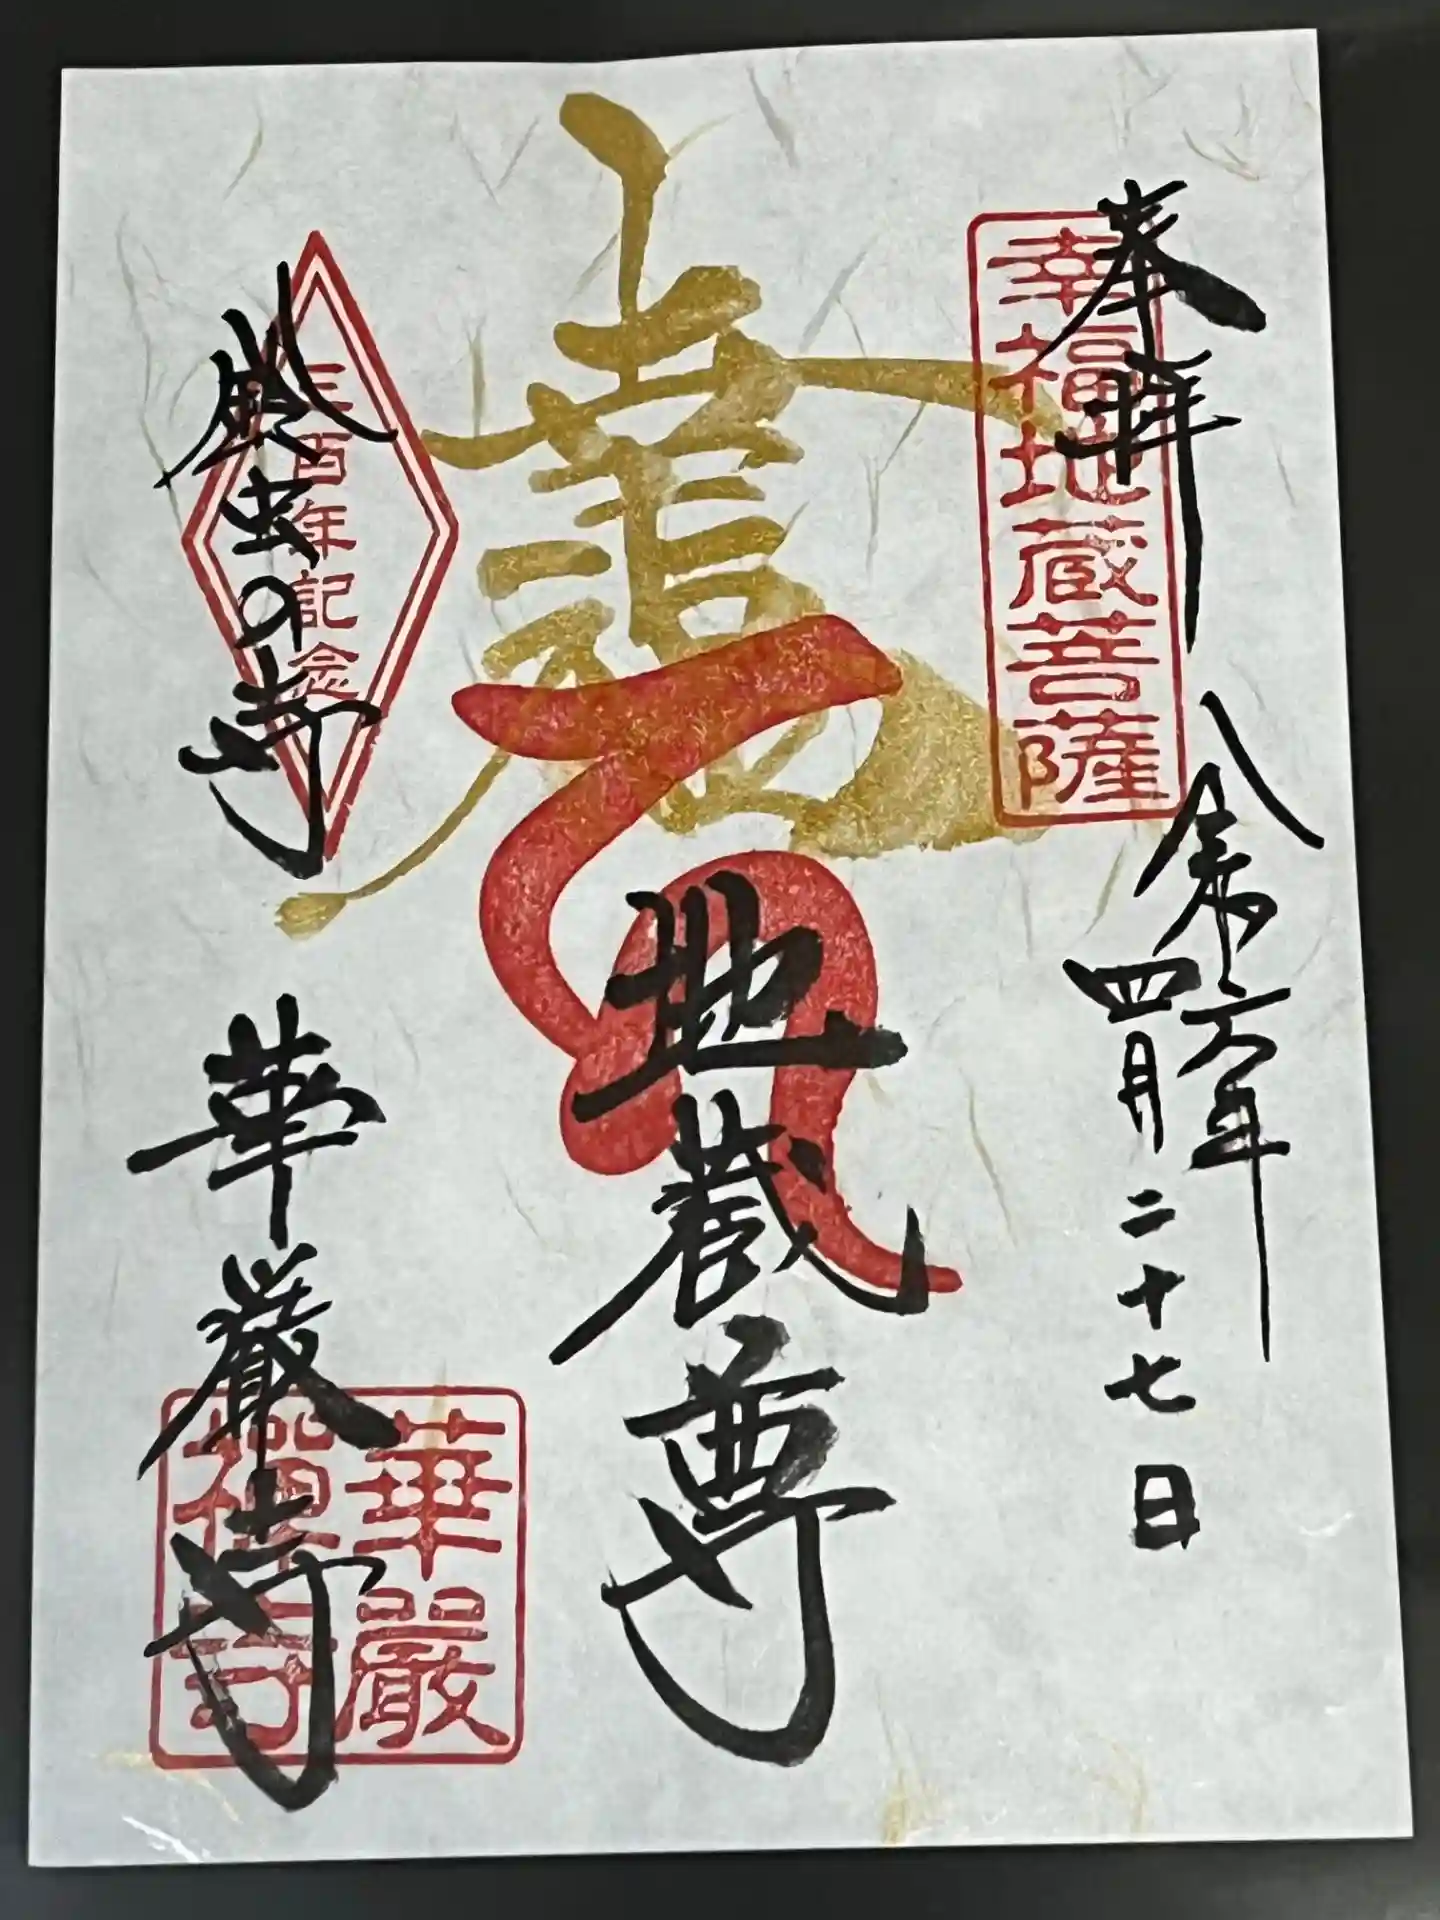 奉拝
幸福地蔵菩薩
令和六年
四月二十七日
地蔵尊
鈴虫の寺
三百年記念
華厳寺
華嚴
禅寺